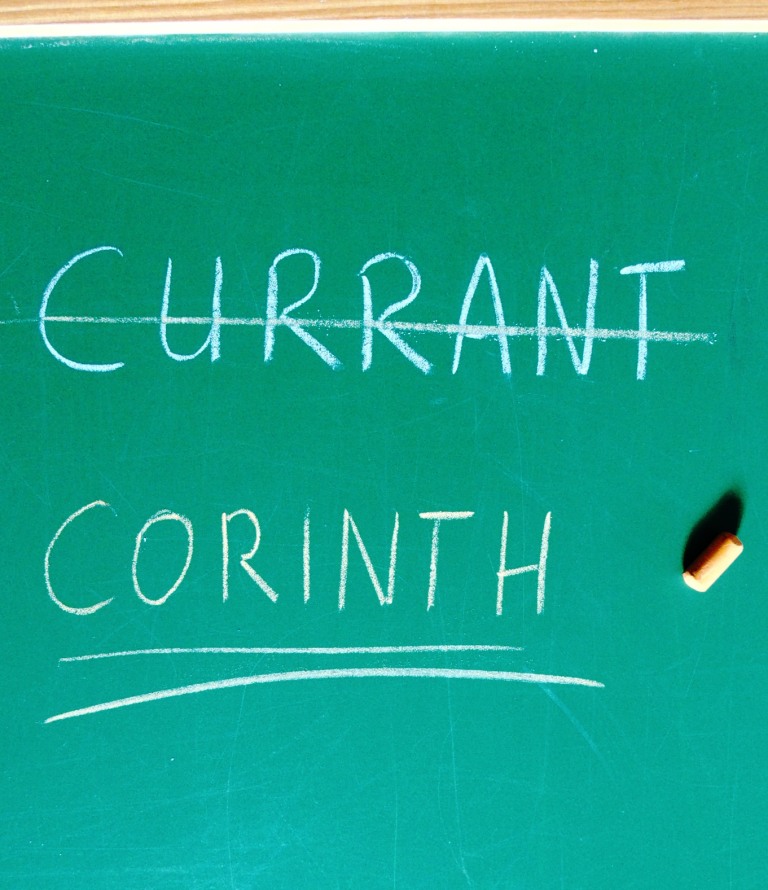 CURRANT
CORINTH